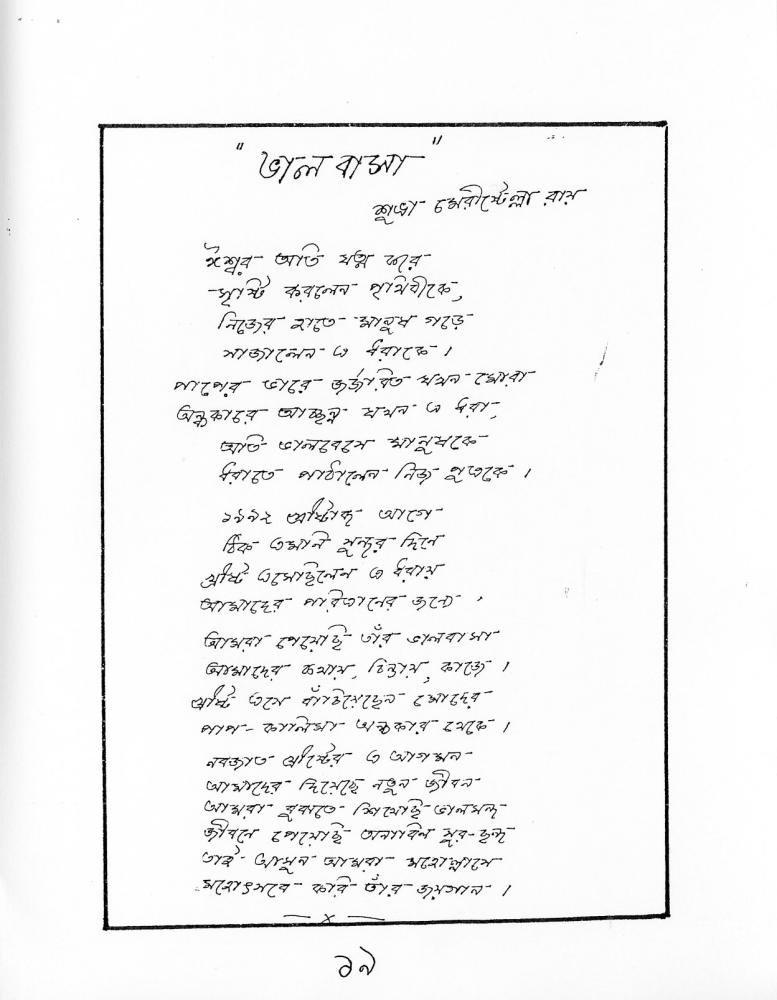 "ভালবাসা"
শুভ্রা মেরীষ্টেল্লা রায়
ঈশ্বর অতি যত্ন করে
সৃষ্টি করলেন পৃথিবীকে,
নিজের হাতে মানুষ গড়ে
সাজালেন এ ধরাকে।
পাপের ভারে জর্জরিত যখন মোরা
অন্ধকারে আচ্ছন্ন যখন এ ধরা,
অতি ভালবেসে মানুষকে
ধরাতে পাঠালেন নিজ পুত্রকে।
১৯৯২ খ্রীষ্টাব্দ আগে
ঠিক এমনি সুন্দর দিনে
খ্রীষ্ট এসেছিলেন এ ধরায়
আমাদের পরিত্রানের জন্যে,
আমরা পেয়েছি তাঁর ভালবাসা
আমাদের কথায়, চিন্তায়, কাজে।
খ্রীষ্ট এসে বাঁচিয়েছেন মোদের
পাপ-কালিমা অন্ধকার থেকে।
নবজাত খ্রীষ্টের এ আগমন
আমাদের দিয়েছে নতুন জীবন
আমরা বুঝতে শিখেছি ভালমন্দ
জীবনে পেয়েছি অনাবিল সুর-ছন্দ
তাই আসুন আমরা মহোল্লাসে
মহোৎসবে করি তাঁর জয়গান।
x
১৯